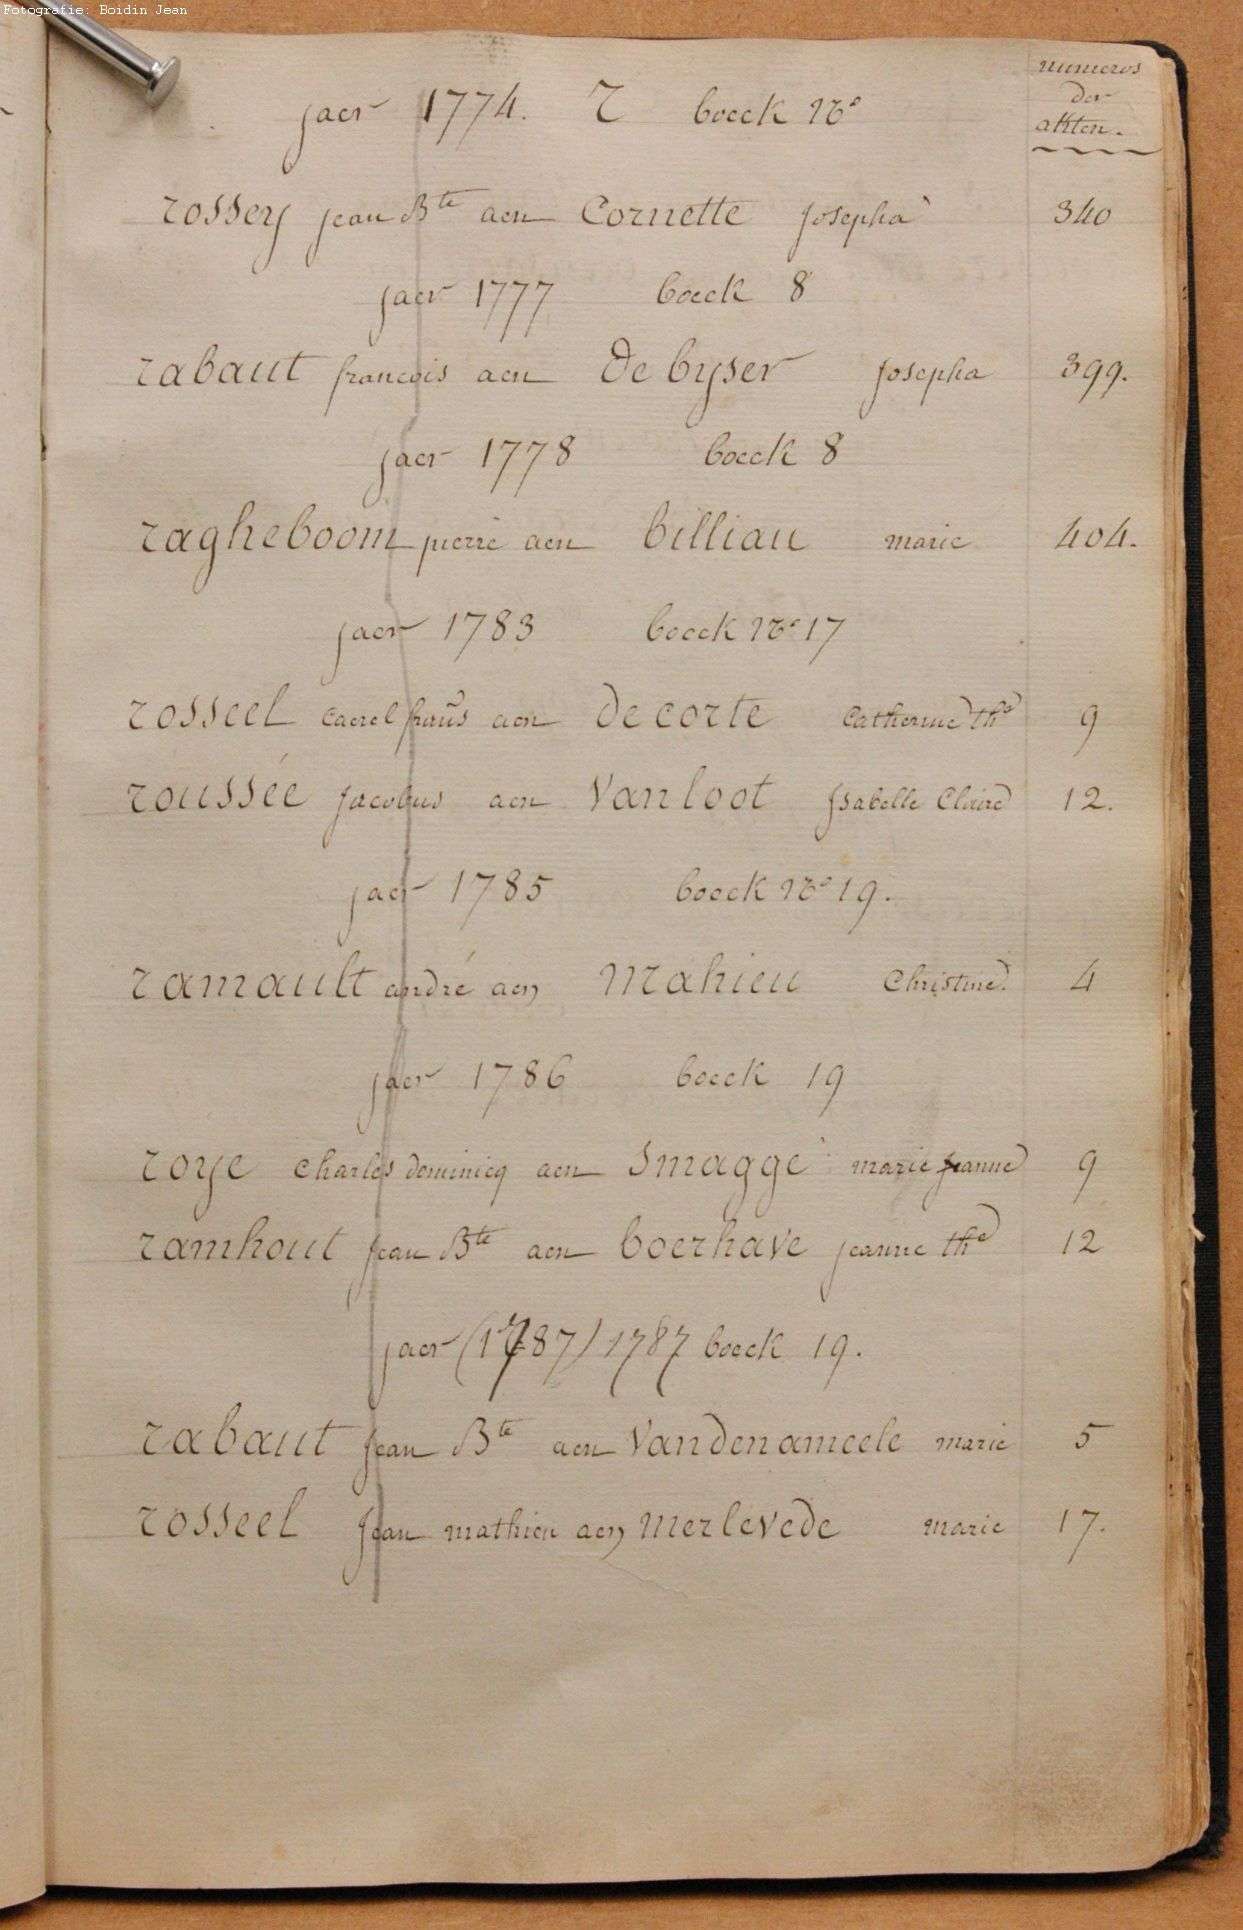 Fotografie: Boidin Jean
numeros
der
akten.
jaer 1774. R boeck No
rossey jean Bte aen Cornette Josepha 340
jaer 1777 boeck 8
rabaut francois aen De byser Josepha 399.
jaer 1778 boeck 8
ragheboom pierre aen billiau marie 404.
jaer 1783 boeck No 17
rosseel Caerel frans aen De corte Catherine the 9
roussée Jacobus aen Vanloot Isabelle Claire 12.
jaer 1785 boeck No 19.
ramault andré aen Mahieu Christine. 4
jaer 1786 boeck 19
roye Charles dominicq aen Smagge marie jeanne 9
ramhout jean Bte aen boerhave jeanne the 12
jaer (1787) 1787 boeck 19.
rabaut jean Bte aen Vandenameele marie 5
rosseel jean mathieu aen Merlevede marie 17.